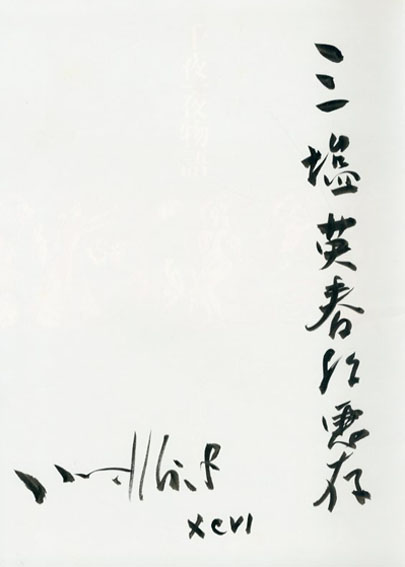 三塩英春様恵存
千夜一夜物語
xcvi